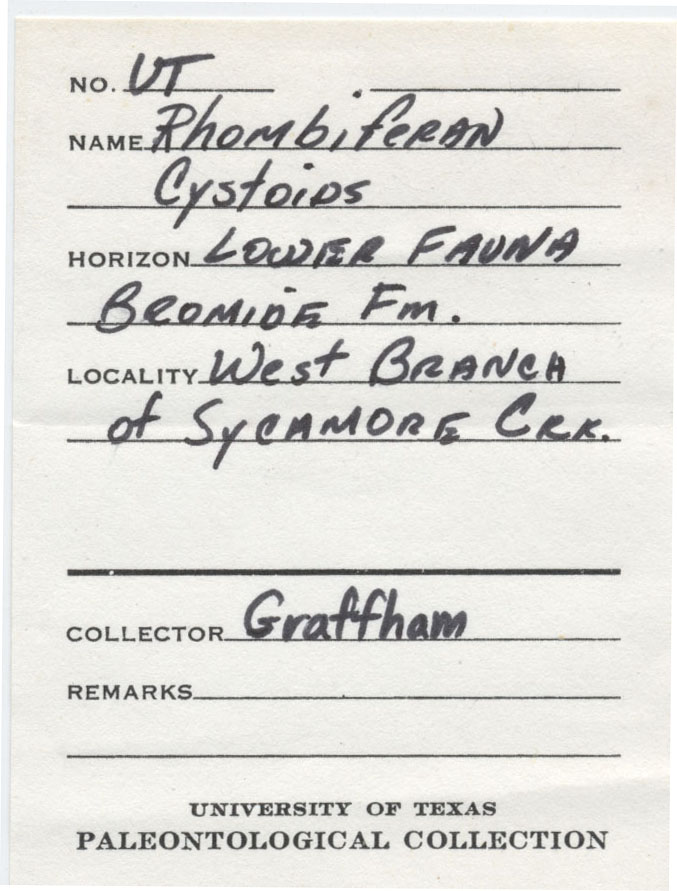 NO. UT
NAME Rhombiferan
Cystoids
HORIZON Lower Fauna
Bromide Fm.
LOCALITY West Branch
of Sycamore Crk.
COLLECTOR Graffham
REMARKS
UNIVERSITY OF TEXAS
PALEONTOLOGICAL COLLECTION